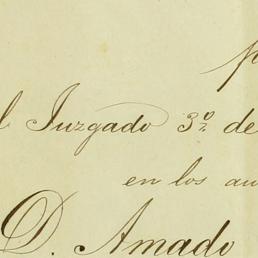 l Juzgado 3º de
en los au
D. Amado